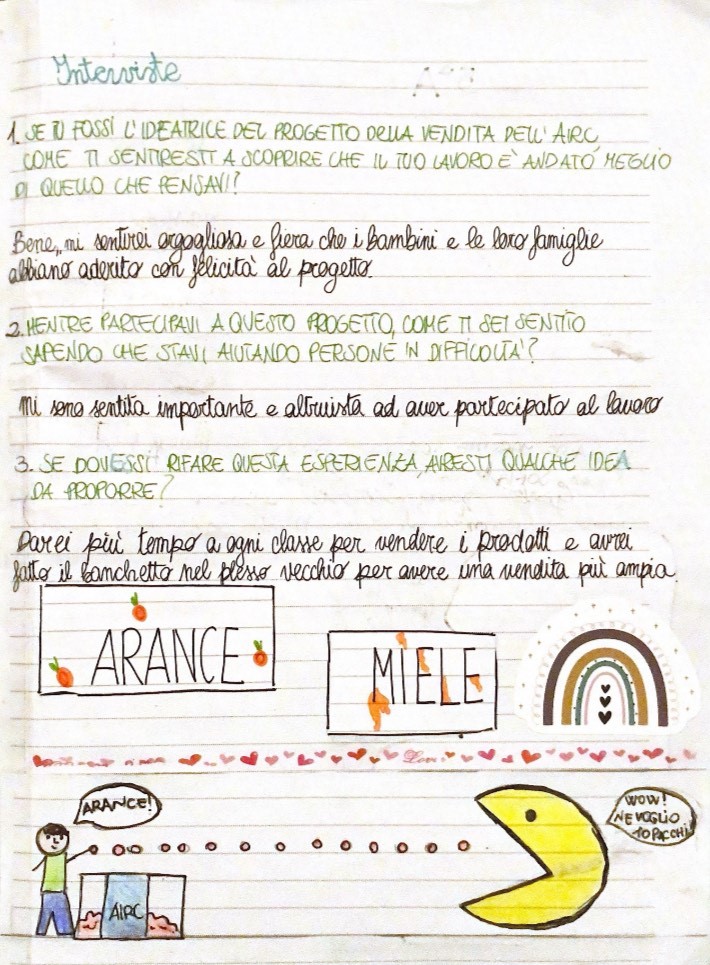 Interviste
1. SE TU FOSSI L'IDEATRICE DEL PROGETTO DELLA VENDITA DELL'AIRC,
COME TI SENTIRESTI A SCOPRIRE CHE IL TUO LAVORO E' ANDATO MEGLIO
DI QUELLO CHE PENSAVI?
Bene, mi sentirei orgogliosa e fiera che i bambini e le loro famiglie
abbiano aderito con felicità al progetto.
2. MENTRE PARTECIPAVI A QUESTO PROGETTO, COME TI SEI SENTITO
SAPENDO CHE STAVI AIUTANDO PERSONE IN DIFFICOLTA'?
Mi sono sentita importante e altruista ad aver partecipato al lavoro
3. SE DOVESSI RIFARE QUESTA ESPERIENZA, AVRESTI QUALCHE IDEA
DA PROPORRE?
Darei più tempo a ogni classe per vendere i prodotti e avrei
fatto il banchetto nel plesso vecchio per avere una vendita più ampia.
ARANCE
MIELE
Love
ARANCE!
WOW!
NE VOGLIO
10 PACCHI!
AIRC